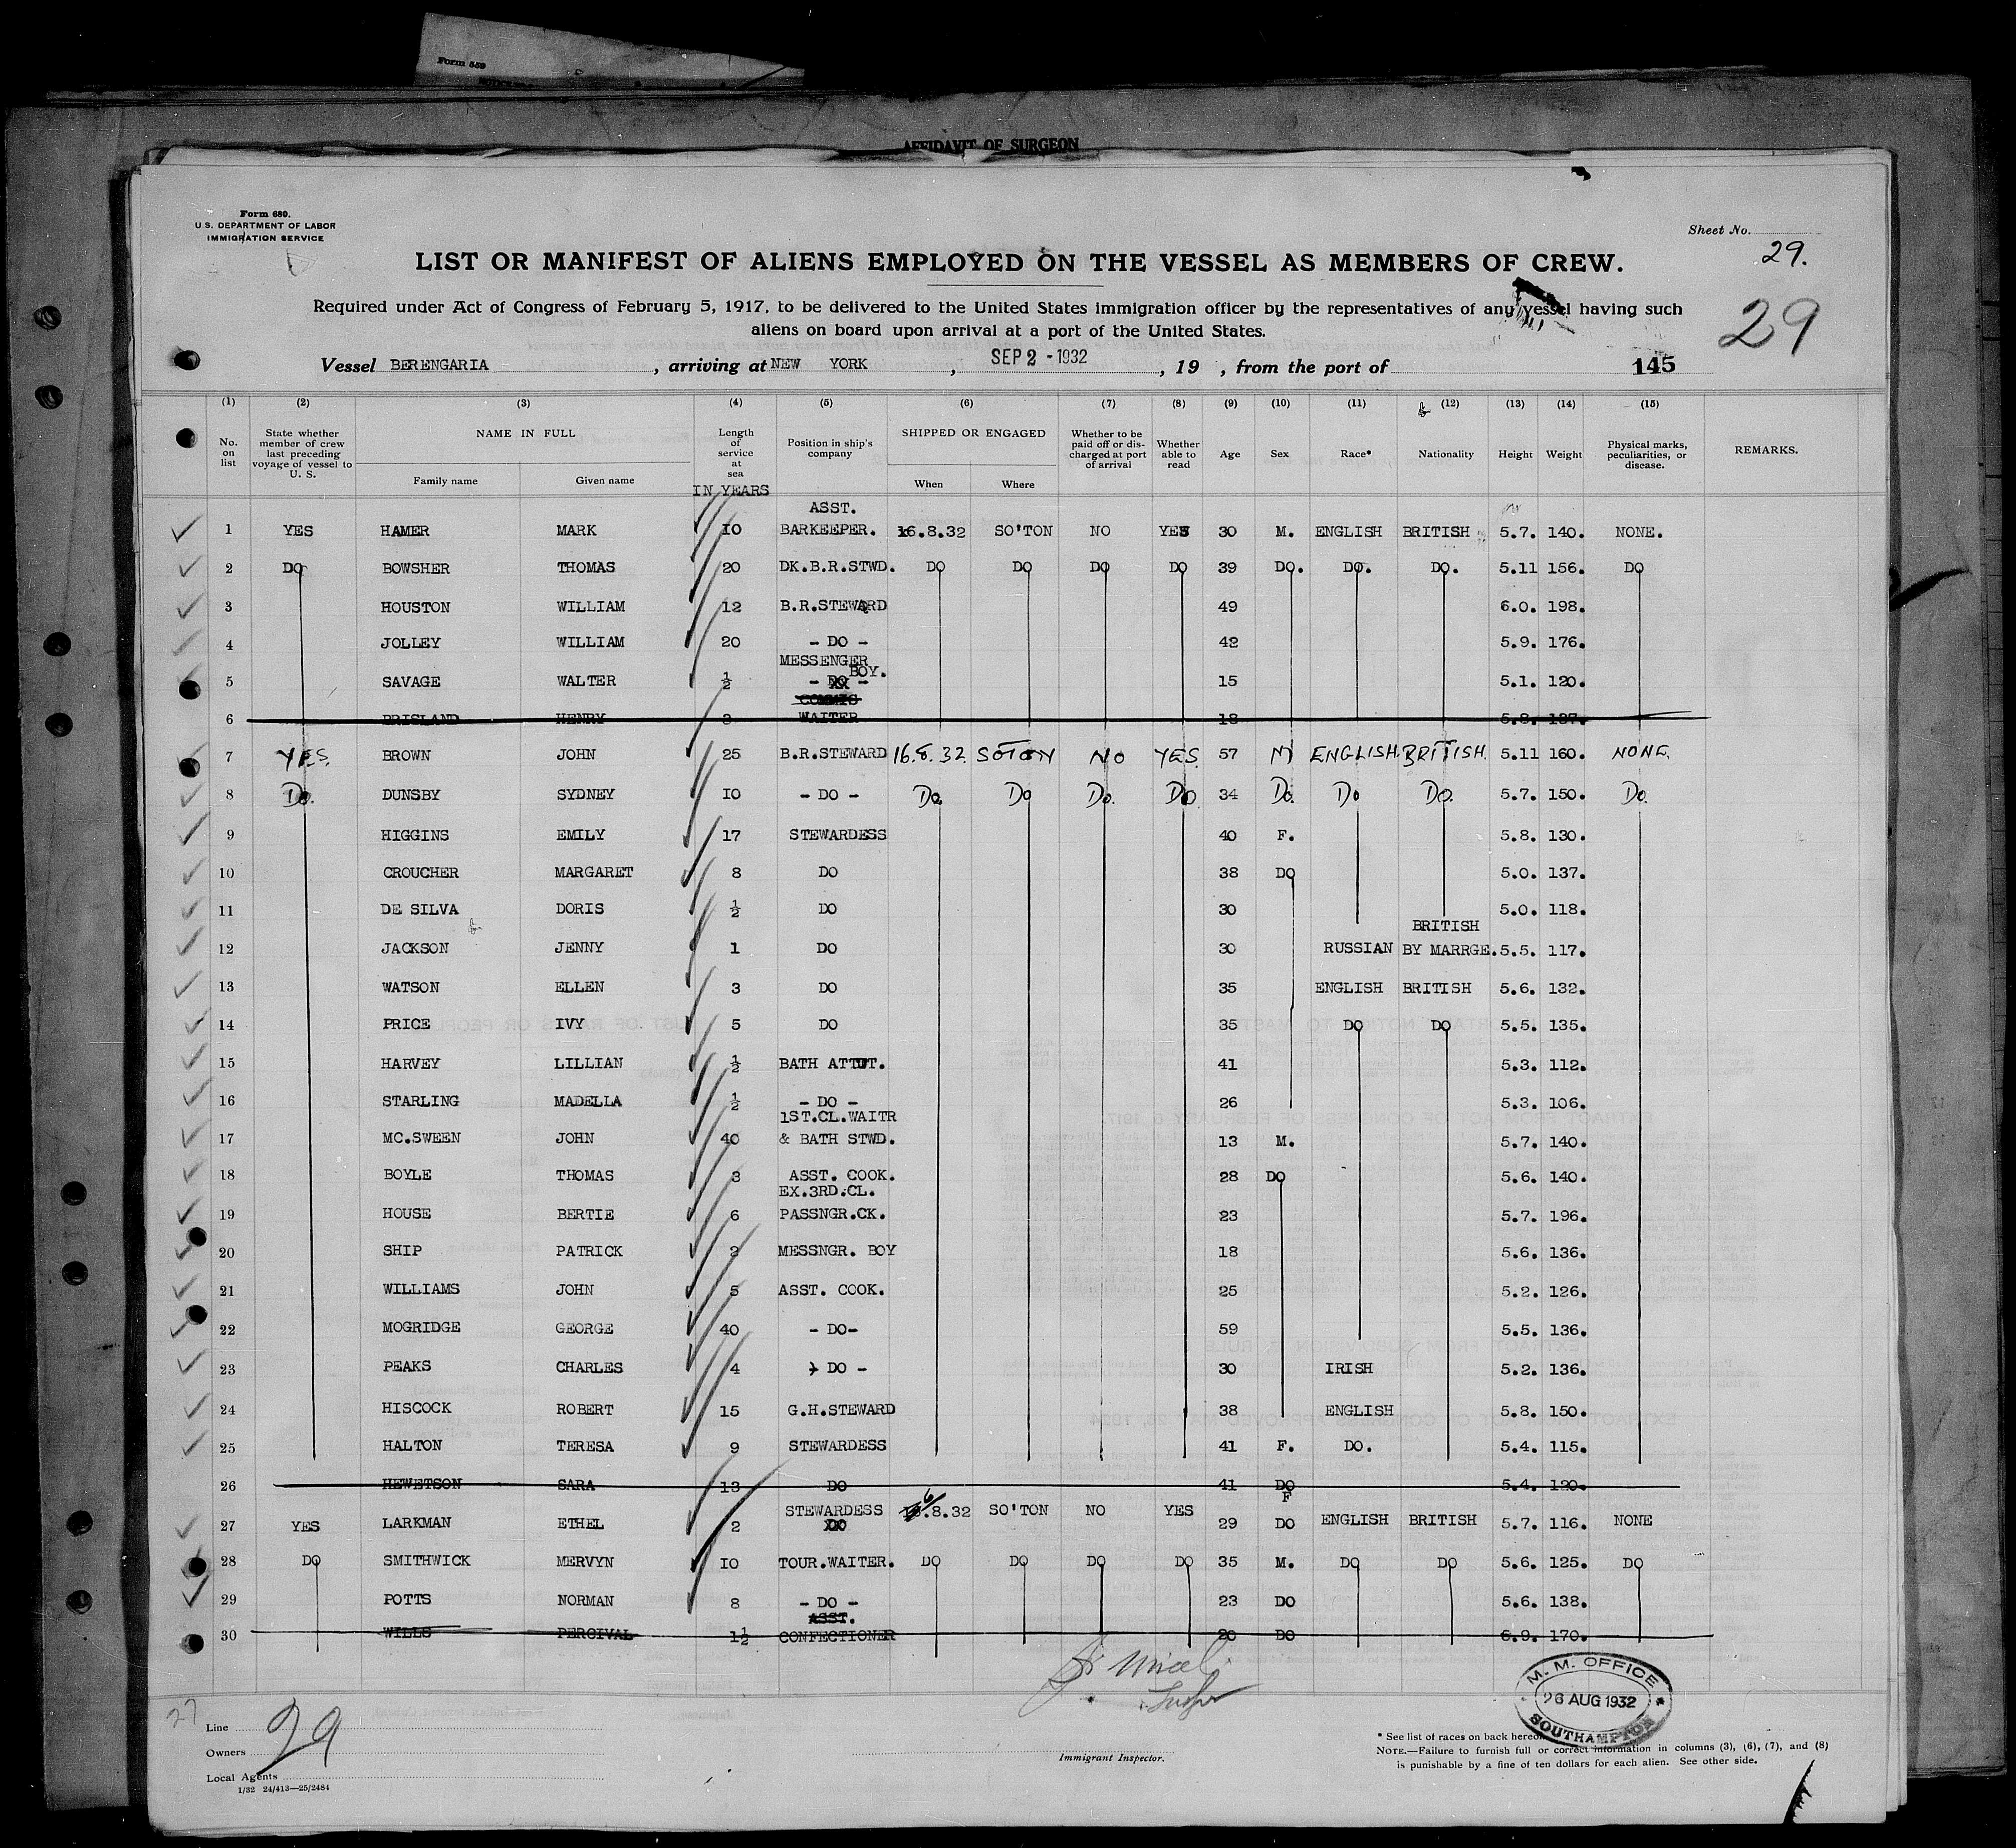 Form 659
AFFIDAVIT OF SURGEON
Form 680.
U.S. DEPARTMENT OF LABOR
IMMIGRATION SERVICE
Sheet No.
29.
LIST OR MANIFEST OF ALIENS EMPLOYED ON THE VESSEL AS MEMBERS OF CREW.
Required under Act of Congress of February 5, 1917, to be delivered to the United States immigration officer by the representatives of any vessel having such
aliens on board upon arrival at a port of the United States.
29
Vessel BERENGARIA, arriving at NEW YORK, SEP 2 - 1932, 19 , from the port of 145
(1) (2) (3) (4) (5) (6) (7) (8) (9) (10) (11) (12) (13) (14) (15)
No. on list State whether member of crew last preceding voyage of vessel to U. S. NAME IN FULL Family name Given name Length of service at sea IN YEARS Position in ship's company SHIPPED OR ENGAGED When Where Whether to be paid off or discharged at port of arrival Whether able to read Age Sex Race* Nationality Height Weight Physical marks, peculiarities, or disease. REMARKS.
1 YES HAMER MARK 10 ASST. BARKEEPER. 16.8.32 SO'TON NO YES 30 M. ENGLISH BRITISH 5.7. 140. NONE.
2 DO BOWSHER THOMAS 20 DK.B.R.STWD. DO DO DO DO 39 DO. DO. DO. 5.11 156. DO
3 HOUSTON WILLIAM 12 B.R.STEWARD 49 6.0. 198.
4 JOLLEY WILLIAM 20 - DO - 42 5.9. 176.
5 SAVAGE WALTER ½ MESSENGER BOY. - DO - 15 5.1. 120.
6 BRISLAND HENRY 3 COMMIS WAITER 18 5.8. 137.
7 YES. BROWN JOHN 25 B.R.STEWARD 16.8.32 SOTON NO YES. 57 M ENGLISH. BRITISH. 5.11 160. NONE.
8 Do. DUNSBY SYDNEY 10 - DO - Do. Do Do. Do 34 Do. Do Do. 5.7. 150. Do.
9 HIGGINS EMILY 17 STEWARDESS 40 F. 5.8. 130.
10 CROUCHER MARGARET 8 DO 38 DO 5.0. 137.
11 DE SILVA DORIS ½ DO 30 5.0. 118.
12 JACKSON JENNY 1 DO 30 RUSSIAN BRITISH BY MARRGE. 5.5. 117.
13 WATSON ELLEN 3 DO 35 ENGLISH BRITISH 5.6. 132.
14 PRICE IVY 5 DO 35 DO DO 5.5. 135.
15 HARVEY LILLIAN ½ BATH ATTDT. 41 5.3. 112.
16 STARLING MADELLA ½ - DO - 26 5.3. 106.
17 MC.SWEEN JOHN 40 1ST.CL.WAITR & BATH STWD. 13 M. 5.7. 140.
18 BOYLE THOMAS 3 ASST. COOK. 28 DO 5.6. 140.
19 HOUSE BERTIE 6 EX.3RD.CL. PASSNGR.CK. 23 5.7. 196.
20 SHIP PATRICK 2 MESSNGR. BOY 18 5.6. 136.
21 WILLIAMS JOHN 5 ASST. COOK. 25 5.2. 126.
22 MOGRIDGE GEORGE 40 - DO- 59 5.5. 136.
23 PEAKS CHARLES 4 - DO - 30 IRISH 5.2. 136.
24 HISCOCK ROBERT 15 G.H.STEWARD 38 ENGLISH 5.8. 150.
25 HALTON TERESA 9 STEWARDESS 41 F. DO. 5.4. 115.
26 HEWETSON SARA 13 DO 41 DO 5.4. 120.
27 YES LARKMAN ETHEL 2 STEWARDESS DO 16.8.32 SO'TON NO YES 29 F DO ENGLISH BRITISH 5.7. 116. NONE
28 DO SMITHWICK MERVYN 10 TOUR.WAITER. DO DO DO DO 35 M. DO DO 5.6. 125. DO
29 POTTS NORMAN 8 - DO - 23 DO 5.6. 138.
30 WILLS PERCIVAL 1½ ASST. CONFECTIONER 20 DO 6.9. 170.
M. M. OFFICE
26 AUG 1932
SOUTHAMPTON
27
Line 29
Owners
Local Agents
1/32 24/413—25/2484
Immigrant Inspector.
* See list of races on back hereof.
NOTE.—Failure to furnish full or correct information in columns (3), (6), (7), and (8)
is punishable by a fine of ten dollars for each alien. See other side.